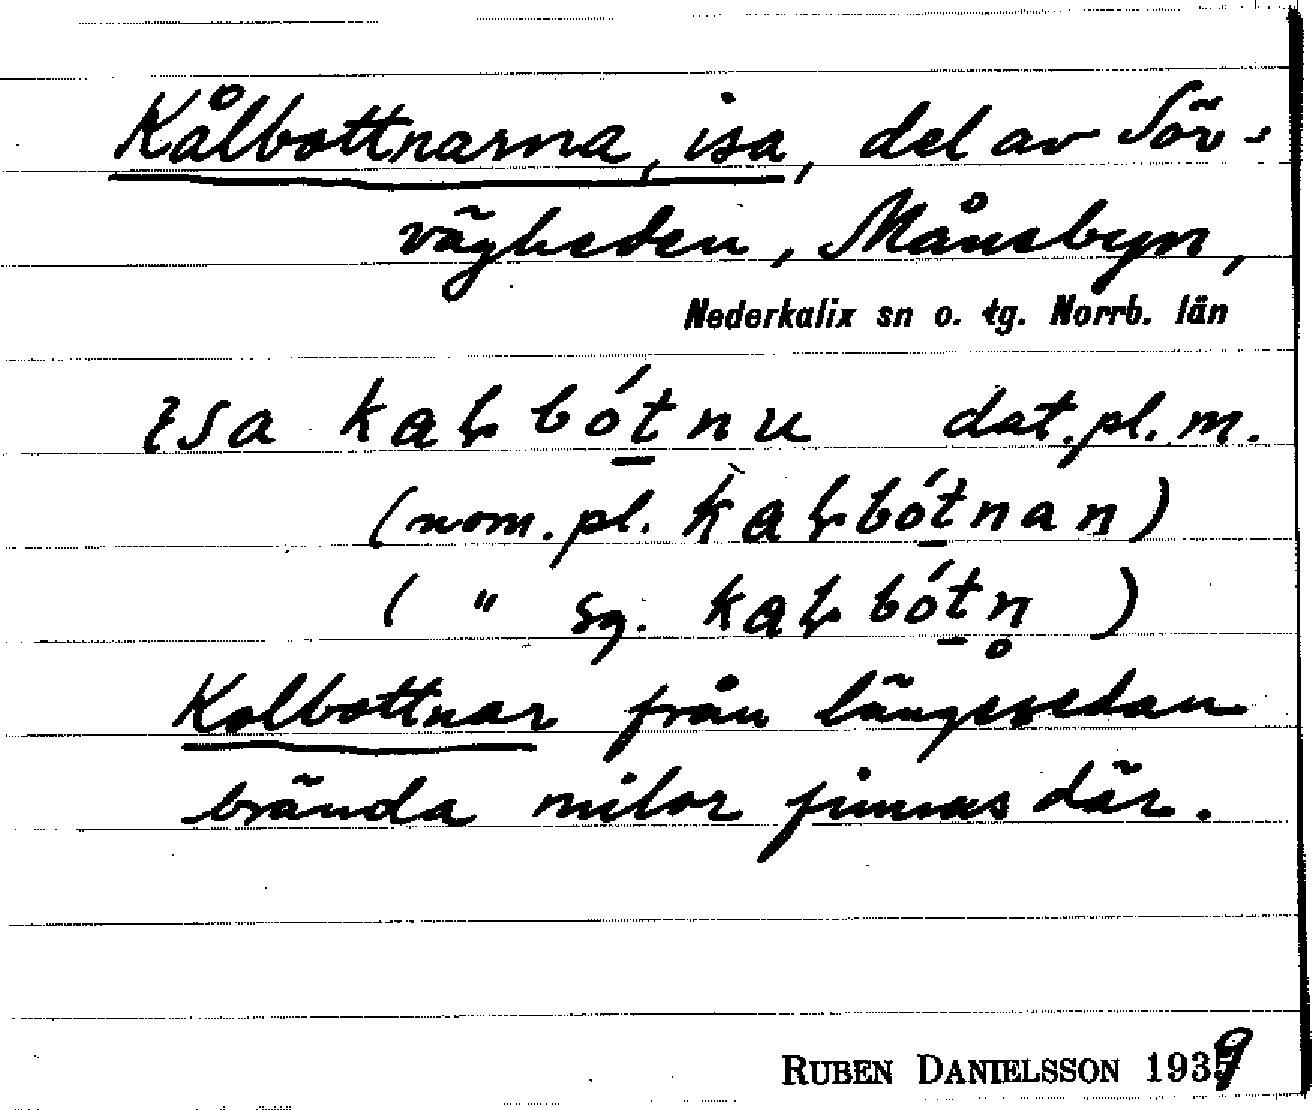 Kålbottnarna, isa, del av Söv-
vägheden, Månsbyn,
Nederkalix sn o. tg. Norrb. län
ɩsa kaḷbótnu dat. pl. m.
(nom. pl. kaḷbótnan)
( " sg. kaḷbótn̥ )
Kolbottnar från längesedan
brända milor finnas där.
RUBEN DANIELSSON 1939